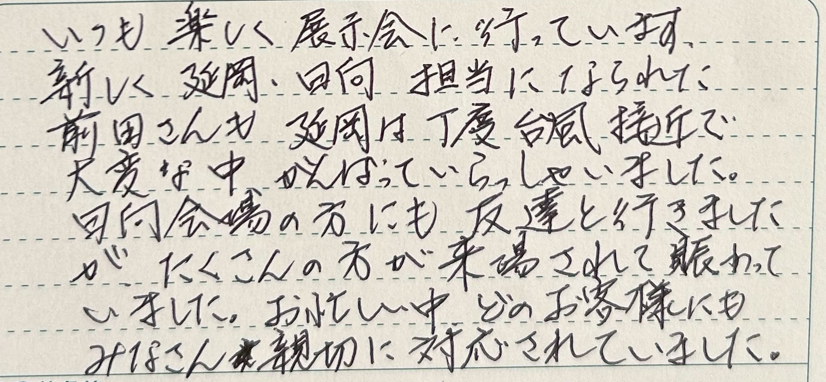 いつも 楽しく 展示会に 行っています。
新しく 延岡、日向 担当に なられた
前田さんも 延岡は 丁度 台風 接近で
大変な中 がんばっていらっしゃいました。
日向会場の方にも 友達と行きました
が、たくさんの方が来場されて 賑わって
いました。お忙しい中 どのお客様にも
みなさん 親切に 対応されていました。